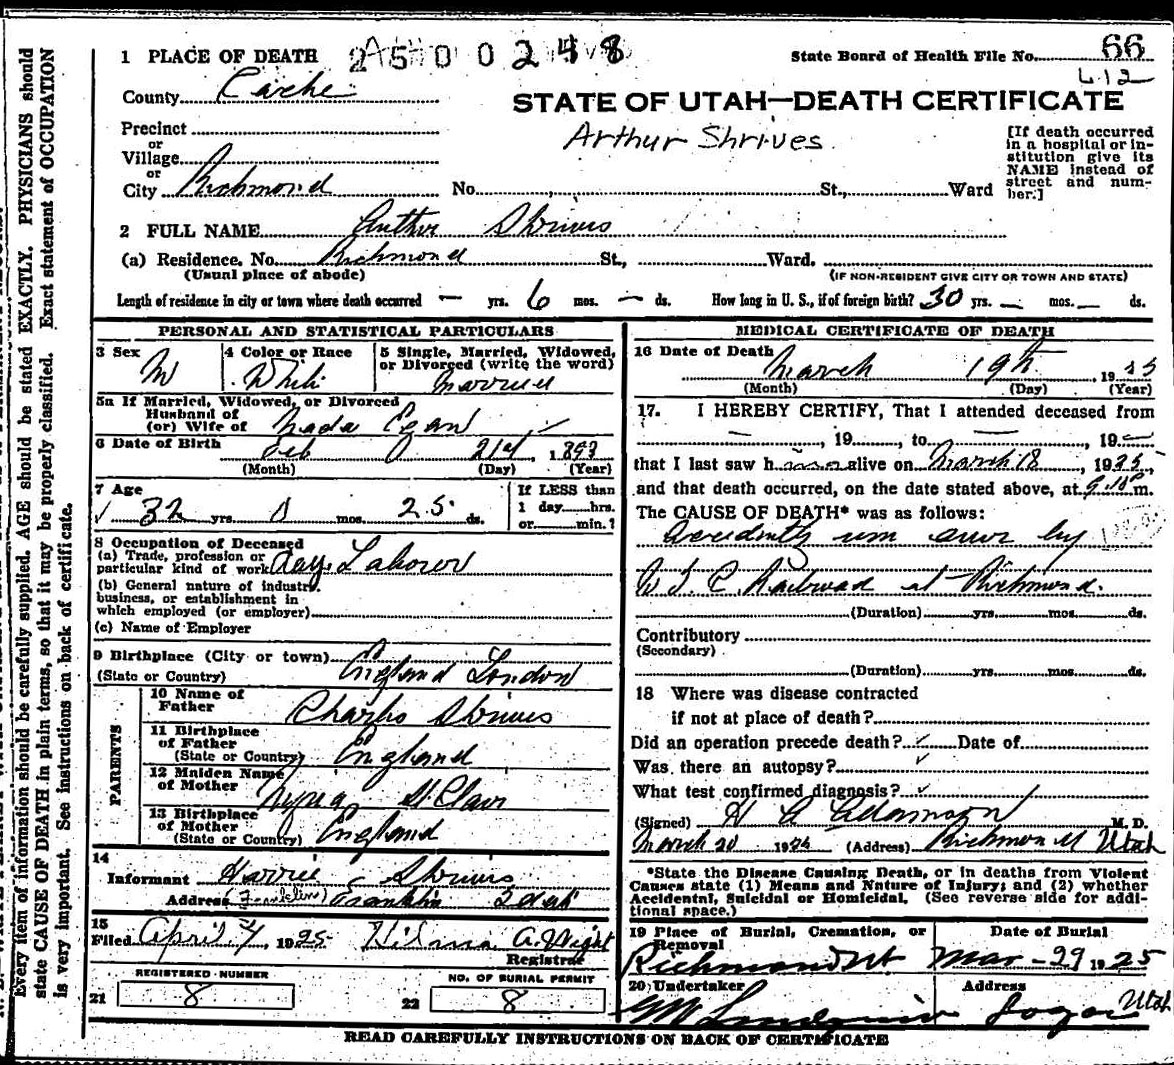 1 PLACE OF DEATH 2500248 State Board of Health File No. 66
County Cache 412
STATE OF UTAH—DEATH CERTIFICATE
Precinct
or
Village
or
City Richmond No. , St., Ward
Arthur Shrives
[If death occurred
in a hospital or in-
stitution give its
NAME instead of
street and num-
ber.]
2 FULL NAME Arthur Shrives
(a) Residence. No. Richmond St., Ward.
(Usual place of abode) (IF NON-RESIDENT GIVE CITY OR TOWN AND STATE)
Length of residence in city or town where death occurred — yrs. 6 mos. — ds. How long in U. S., if of foreign birth? 30 yrs. — mos. — ds.
PERSONAL AND STATISTICAL PARTICULARS
3 Sex
M
4 Color or Race
White
5 Single, Married, Widowed,
or Divorced (write the word)
Married
5a If Married, Widowed, or Divorced
Husband of
(or) Wife of Nada Egan
6 Date of Birth Feb 21st, 1893
(Month) (Day) (Year)
7 Age
32 yrs. 0 mos. 25 ds.
If LESS than
1 day hrs.
or min.?
8 Occupation of Deceased
(a) Trade, profession or
particular kind of work Day Laborer
(b) General nature of industry,
business, or establishment in
which employed (or employer)
(c) Name of Employer
9 Birthplace (City or town)
(State or Country) England London
PARENTS
10 Name of
Father Charles Shrives
11 Birthplace
of Father
(State or Country) England
12 Maiden Name
of Mother St. Clair
13 Birthplace
of Mother
(State or Country) England
14
Informant Shrives
Address (Franklin) Franklin Idah
15
Filed April 1925 Hilma A. Wight
Registrar
REGISTERED NUMBER
21 8
NO. OF BURIAL PERMIT
22 8
MEDICAL CERTIFICATE OF DEATH
16 Date of Death
March 19th 1925
(Month) (Day) (Year)
17. I HEREBY CERTIFY, That I attended deceased from
— , 19 , to — , 19 —
that I last saw h alive on March 18, 1925,
and that death occurred, on the date stated above, at 9.10 P m.
The CAUSE OF DEATH* was as follows:
Accidently run over by
Railroad at Richmond.
(Duration) yrs. mos. ds.
Contributory
(Secondary)
(Duration) yrs. mos. ds.
18 Where was disease contracted
if not at place of death?
Did an operation precede death? ✓ Date of
Was there an autopsy? ✓
What test confirmed diagnosis? ✓
(Signed) Adamson M. D.
March 20 192 (Address) Richmond Utah
*State the Disease Causing Death, or in deaths from Violent
Causes state (1) Means and Nature of Injury; and (2) whether
Accidental, Suicidal or Homicidal. (See reverse side for addi-
tional space.)
19 Place of Burial, Cremation, or
Removal
Richmond Ut
Date of Burial
Mar-29 1925
20 Undertaker
Lundquist
Address
Logan Utah
READ CAREFULLY INSTRUCTIONS ON BACK OF CERTIFICATE
Every item of information should be carefully supplied. AGE should be stated EXACTLY. PHYSICIANS should
state CAUSE OF DEATH in plain terms, so that it may be properly classified. Exact statement of OCCUPATION
is very important. See instructions on back of certificate.